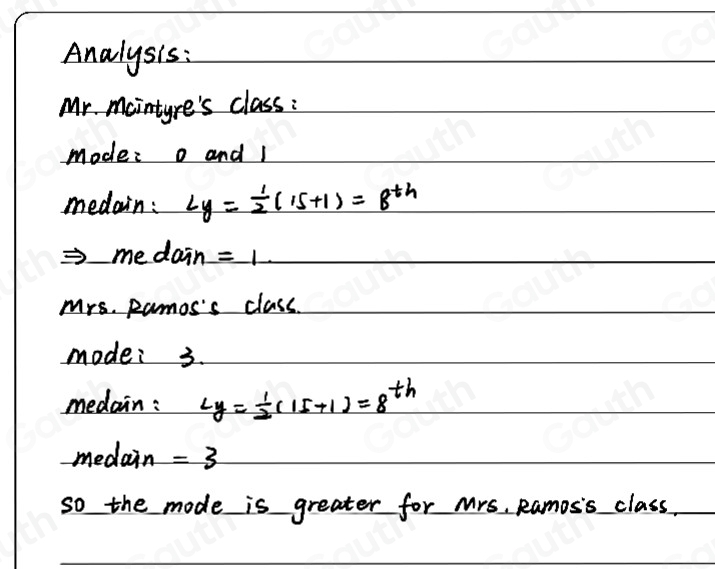 Analysis:
Mr. Mcintyre's class:
mode: 0 and 1
medain: Ly = 1/2 (15+1) = 8th
⇒ medain = 1.
Mrs. Ramos's class.
mode: 3.
medain: Ly = 1/2 (15+1) = 8th
medain = 3
so the mode is greater for Mrs. Ramos's class.